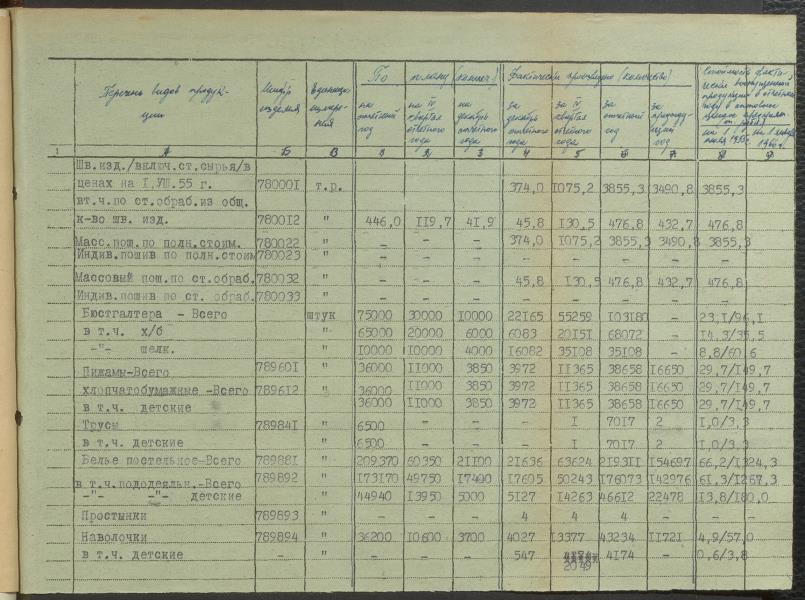 Перечень видов продук-ции | Шифр изделия | Единица измере-ния | По плану (колич.) | Фактически произведено (количество) | Стоимость факти-чески выпущенной продукции в отчетном году в оптовых ценах предприят.
на отчетный год | на IV квартал отчетного года | на декабрь отчетного года | за декабрь отчетного года | за IV квартал отчетного года | за отчетный год | за предыду-щий год
1 | А | Б | В | 1 | 2 | 3 | 4 | 5 | 6 | 7 | 8 | 9
Шв.изд./включ.ст.сырья/в
ценах на I.УШ.55 г. 780001 т.р. 374,0 1075,2 3855,3 3490,8 3855,3
вт.ч.по ст.обраб.из общ.
к-во шв. изд. 780012 " 446,0 119,7 41,9 45,8 130,5 476,8 432,7 476,8
Масс.пош.по полн.стоим. 780022 " - - - 374,0 1075,2 3855,3 3490,8 3855,3
Индив.пошив по полн.стоим 780023 " - - - - - - - -
Массовый пош.по ст.обраб. 780032 " 45,8 130,5 476,8 432,7 476,8
Индив.пошив по ст. обраб. 780033 " - - - - - - - -
Бюстгалтера - Всего штук 75000 30000 10000 22165 55259 103180 - 23,1/96,1
в т.ч. х/б " 65000 20000 6000 6083 20151 68072 - 14,3/35,5
-"- шелк. " 10000 10000 4000 16082 35108 35108 - 8,8/60,6
Пижамы-Всего 789601 " 36000 11000 3850 3972 11365 38658 16650 29,7/149,7
хлопчатобумажные -Всего 789612 " 36000 11000 3850 3972 11365 38658 16650 29,7/149,7
в т.ч. детские " 36000 11000 3850 3972 11365 38658 16650 29,7/149,7
Трусы 789841 " 6500 - - - 1 7017 2 1,0/3,3
в т.ч. детские " 6500 - - - 1 7017 2 1,0/3,3
Белье постельное-Всего 789881 " 209370 60350 21100 21636 63624 219311 154697 66,2/1324,3
в т.ч.пододеяльн.-Всего 789892 " 173170 49750 17400 17605 50243 176073 142976 61,3/1267,3
-"- -"- детские " 44940 13950 5000 5127 14263 46612 22478 13,8/180,0
Простынки 789893 " - - - 4 4 4 - -
Наволочки 789894 " 36200 10600 3700 4027 13377 43234 11721 4,9/57,0
в т.ч. детские - " - - - 547 4174 - 0,6/3,8
2049